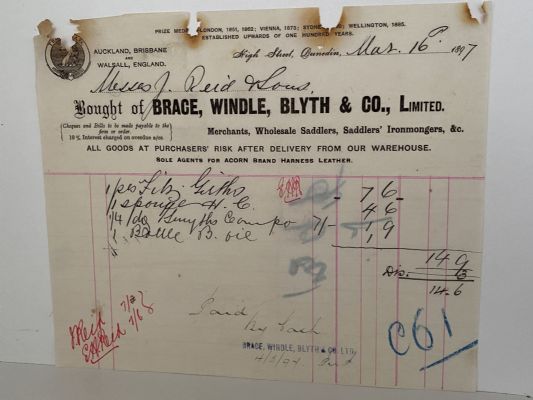 PRIZE MEDALS, LONDON, 1851, 1862; VIENNA, 1873; SYDNEY, WELLINGTON, 1885.
ESTABLISHED UPWARDS OF ONE HUNDRED YEARS.
AUCKLAND, BRISBANE
AND
WALSALL, ENGLAND.
High Street, Dunedin, Mar. 16 1897
Messrs J. Reid & Sons,
Bought of BRACE, WINDLE, BLYTH & CO., LIMITED.
(Cheques and Bills to be made payable to the firm or order)
10% Interest charged on overdue a/cs.
Merchants, Wholesale Saddlers, Saddlers' Ironmongers, &c.
ALL GOODS AT PURCHASERS' RISK AFTER DELIVERY FROM OUR WAREHOUSE.
SOLE AGENTS FOR ACORN BRAND HARNESS LEATHER.
Girths 7 6
1 sponge H. C. 4 6
1/4 do Compo 7/- 1 9
1 Bottle B. oil
14 9
Dis. 3
14.6
J Reid 7/3
EHReid 7/6
C61
Paid
By Cash
BRACE, WINDLE, BLYTH & CO. LTD.